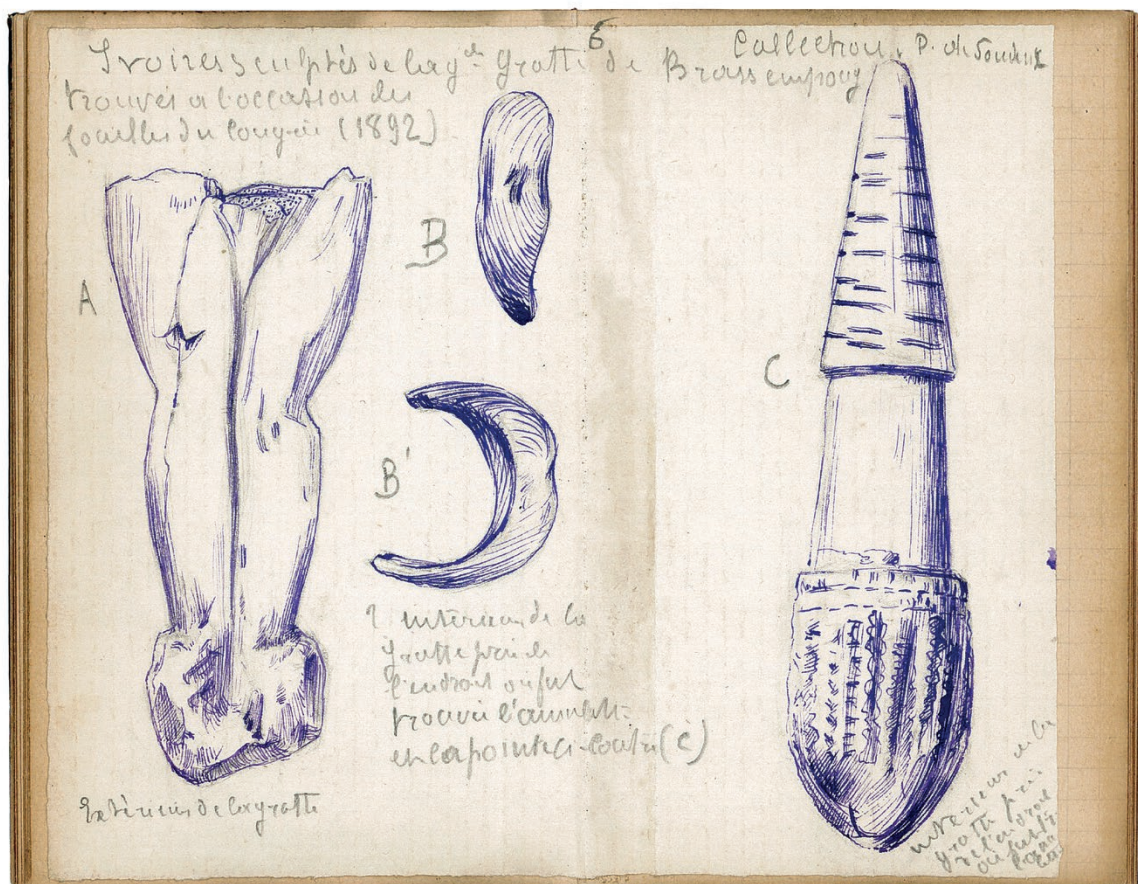 6
Ivoires sculptés de la gde Grotte de Brassempouy
Collection P. de
trouvés a l'occasion des
fouilles du Congrès (1892)
A
B
B'
C
intérieur de la
grotte près de
l'endroit ou fut
trouvée
et la pointe ci-contre (C)
Extérieur de la grotte
intérieur de la
grotte près
de l'endroit
ou fut